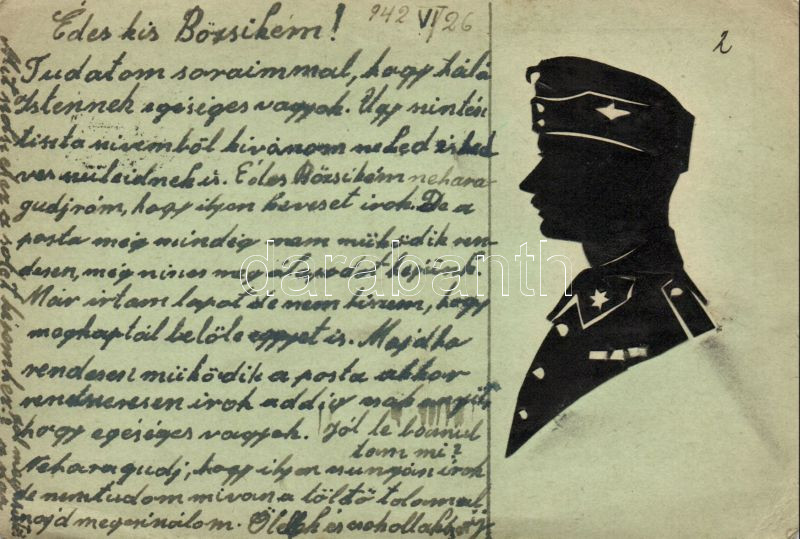 942 VI/26
2
Édes kis Bözsikém!
Tudatom soraimmal, hogy hála
Istennek egéséges vagyok. Úgy mintén
tiszta szivemből kivánom neked és ked
ves szüleidnek is. Édes Bözsikém nehara
gudj rám, hogy ilyen keveset irok. De a
posta még mindég nem müködik ren-
desen, még nincs meg
Már irtam lapot de nem hiszem, hogy
megkaptál belöle egyet is. Majdha
rendesen müködik a posta akkor
rendszeresen irok addig csak anyit
hogy egeséges vagyok. Jól le barnul
tam mi?
Neharagudj, hogy ilyen csunyán irok
de nemtudom mivan a töltő tolamal
majd megcsinálom. Ölellek és csokollak
darabanth